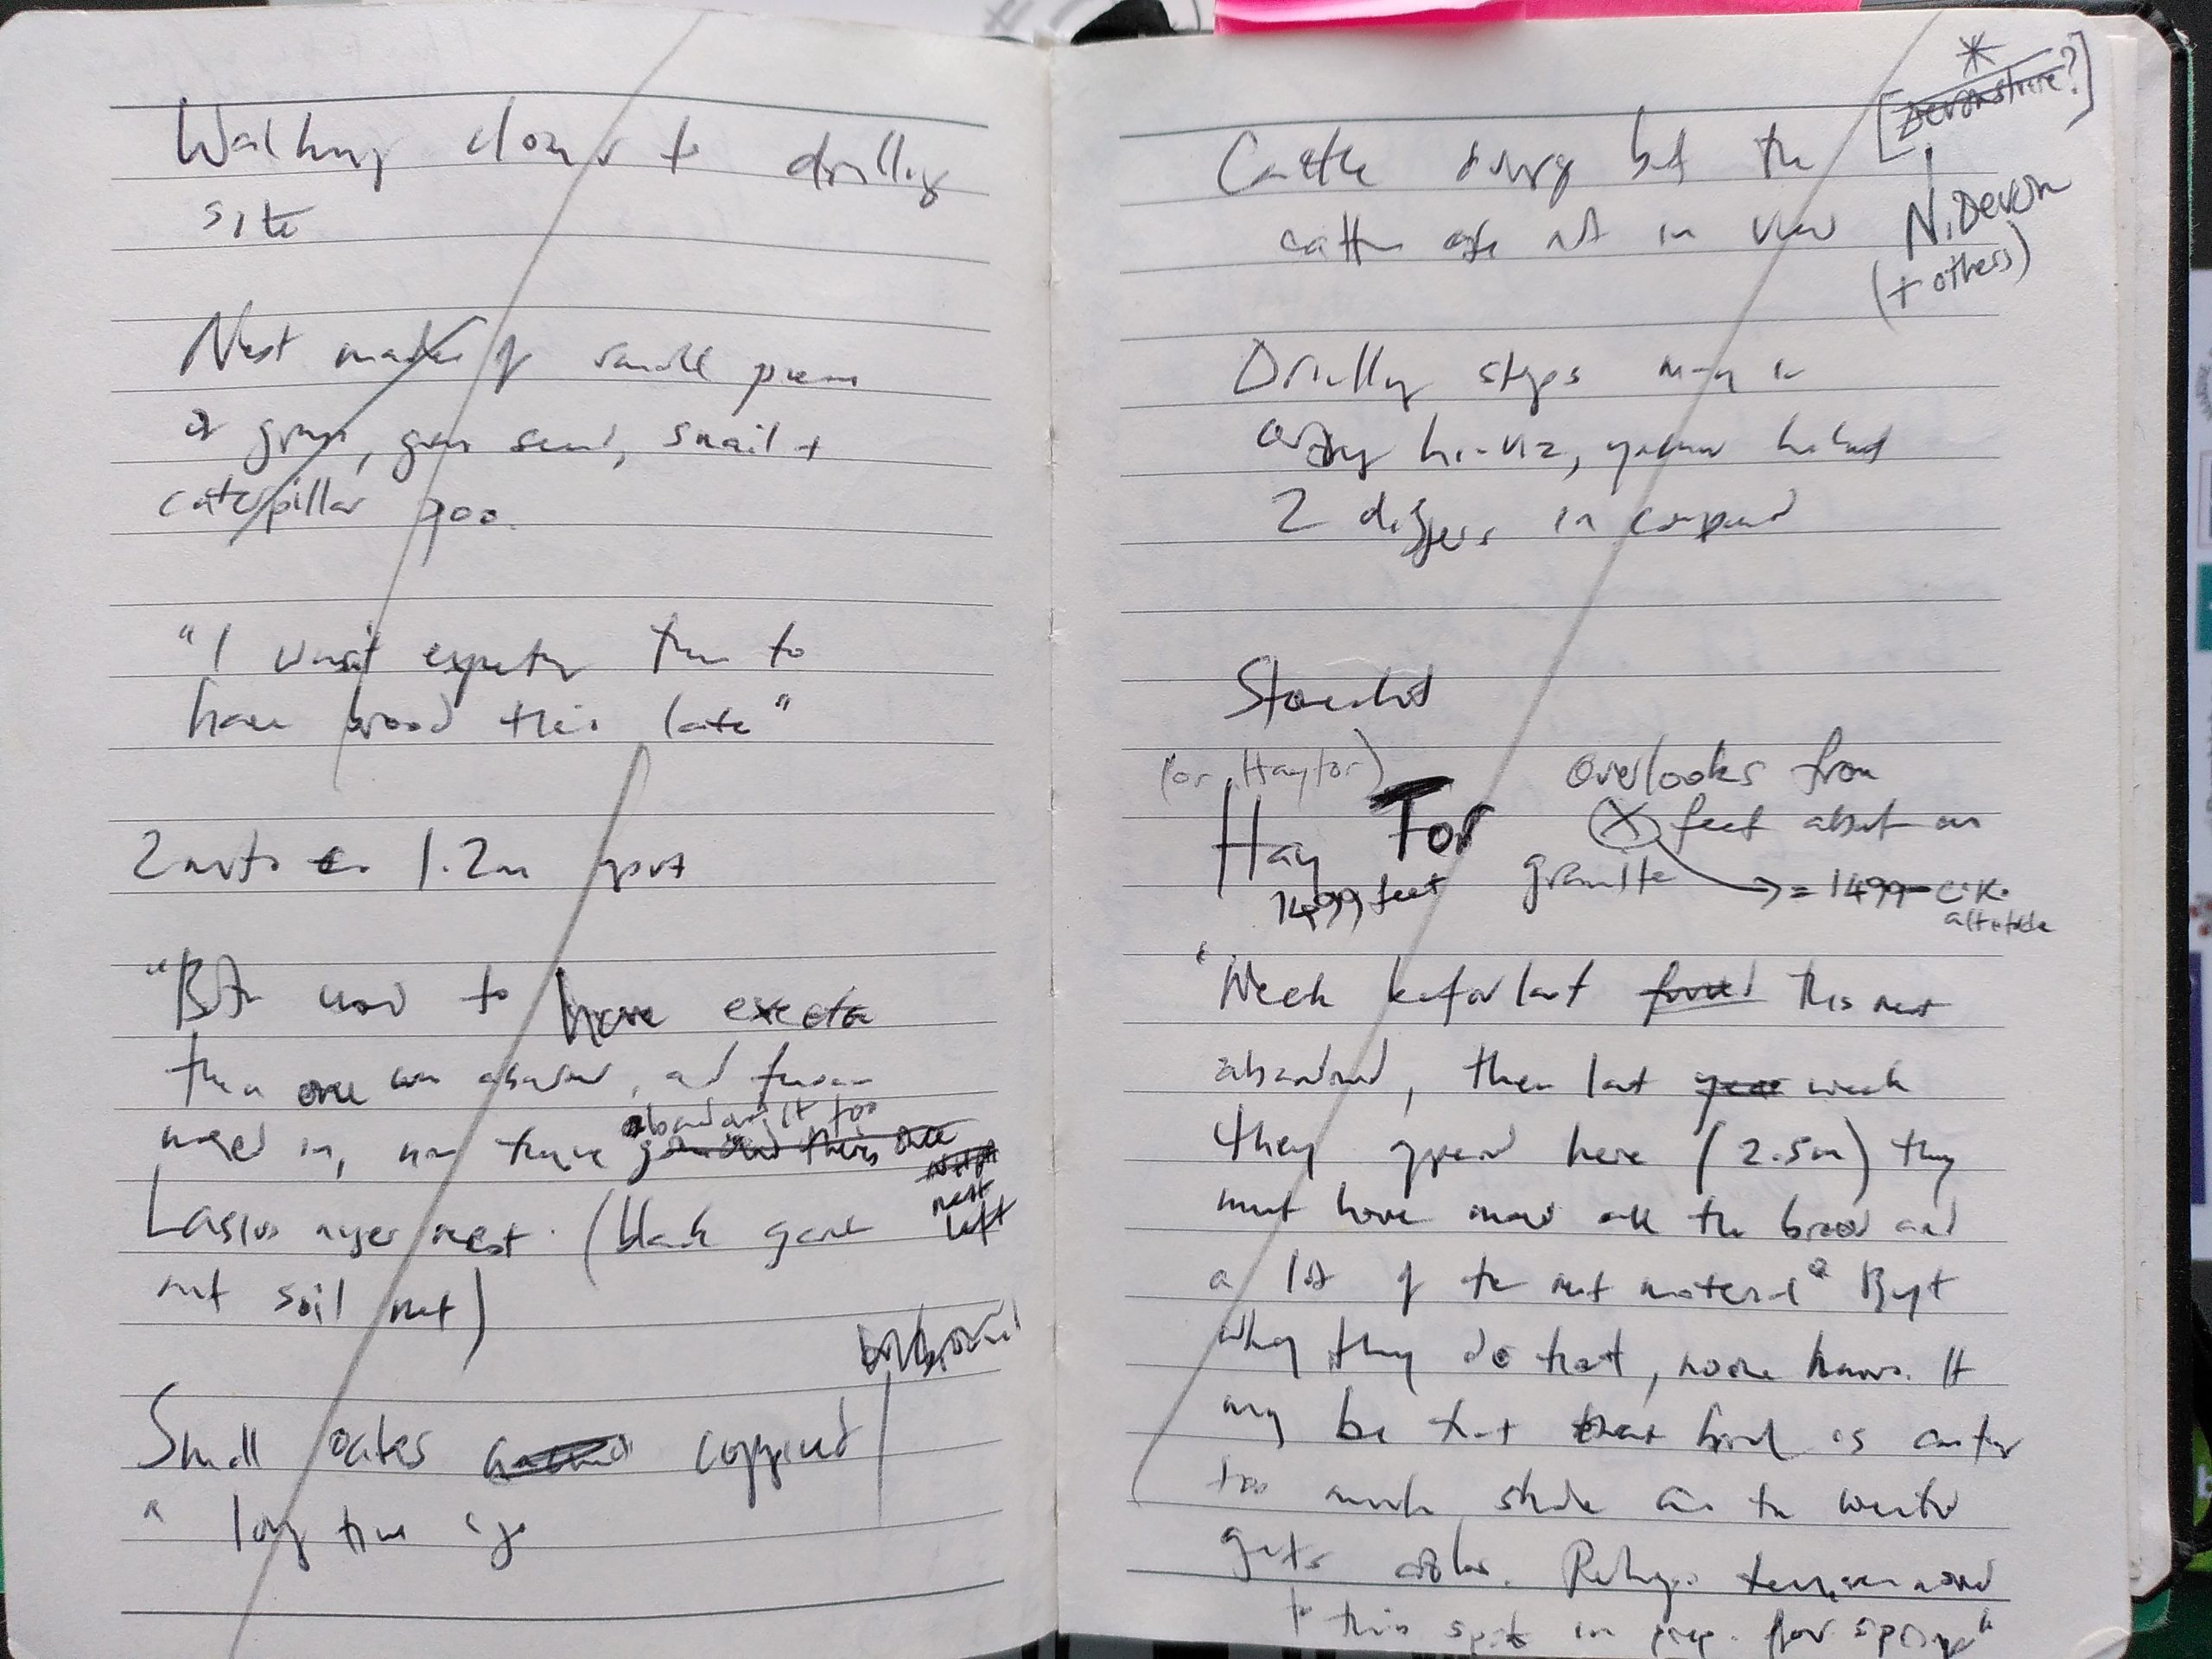 Walking down to drilling
site
Nest made of small pieces
of grass, grass seed, snail +
caterpillar poo.
"I wasn't expecting them to
have brood this late"
2 nests 1.2m apart
"But used to have
then one was abandoned, and
moved in, now they've abandoned it too
Lasius niger nest. (black garden
ant soil nest)
nest
left
Small oaks coppiced
a long time ago
Cattle but the
cattle are not in view
[Devonshire?]
N. Devon
(+ others)
Drilling stops man in
orange hi-viz, yellow helmet
2 diggers in compound
Stonechat
(or Haytor)
Hay Tor
1499 feet
Overlooks from
X feet about on
granite
= 1499 - CK.
altitude
"Week before last found this nest
abandoned, then last year week
they appeared here (2.5m) they
must have moved all the brood and
a lot of the nest material" But
why they do that, no one knows. It
may be that that is casting
too much shade as the winter
gets colder. Perhaps they've moved
to this spot in prep. for spring"